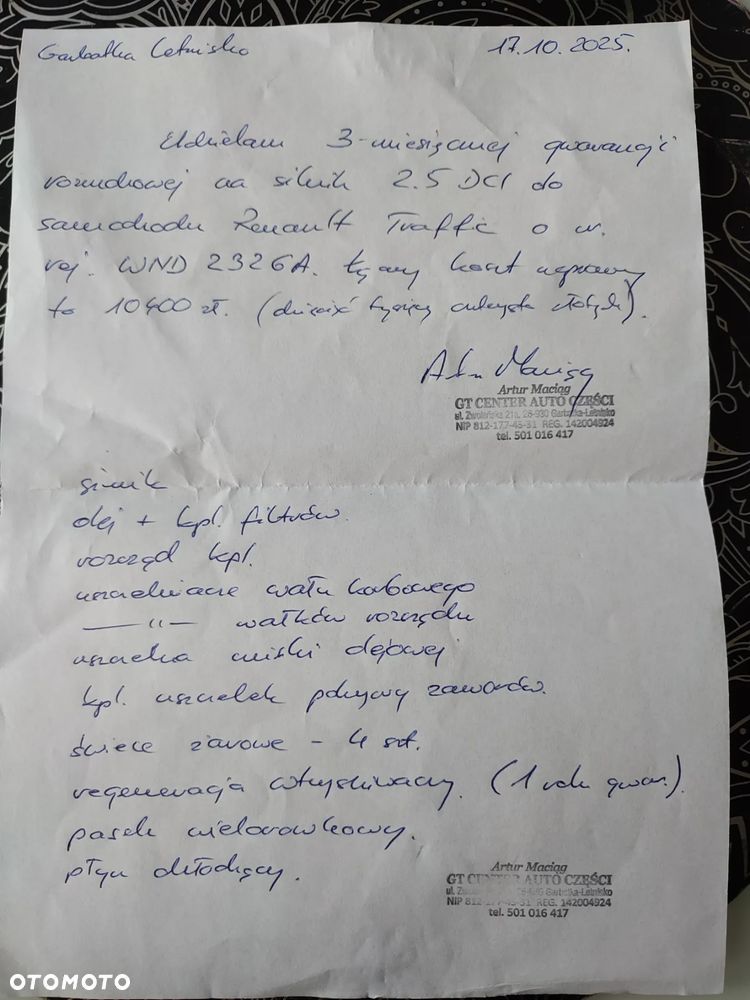 Garbatka Letnisko 17.10.2025.
Udzielam 3-miesięcznej gwarancji
rozruchowej na silnik 2.5 DCI do
samochodu Renault Traffic o nr.
rej. WND 2326A. Łączny koszt naprawy
to 10400 zł. (dziesięć tysięcy czterysta złotych).
Artur Maciąg
GT CENTER AUTO CZĘŚCI
ul. Zwoleńska 21a, 26-930 Garbatka-Letnisko
NIP 812-177-45-31 REG. 142004924
tel. 501 016 417
silnik
olej + kpl. filtrów.
rozrząd kpl.
uszczelniacze wału korbowego
—— " — wałków rozrządu
uszczelka miski olejowej
kpl. uszczelek pokrywy zaworów.
świece żarowe - 4 szt.
regeneracja wtryskiwaczy. (1 rok gwar.).
pasek wielorowkowy.
płyn chłodzący.
Artur Maciąg
GT CENTER AUTO CZĘŚCI
Garbatka-Letnisko
NIP 812-177-45-31 REG. 142004924
tel. 501 016 417
OTOMOTO